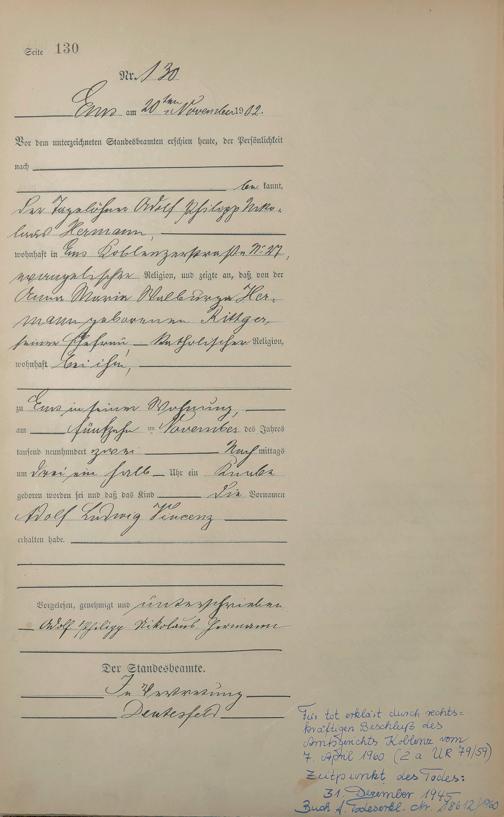 Seite 130
Nr. 130
Ems am 20ten November 1902.
Vor dem unterzeichneten Standesbeamten erschien heute, der Persönlichkeit
nach
be kannt,
der Tagelöhner Adolf Philipp Niko-
laus Hermann,
wohnhaft in Ems Koblenzerstraße No 27,
evangelischer Religion, und zeigte an, daß von der
Anna Maria Walburga Her-
mann geborenen Rittger,
seiner Ehefrau, katholischer Religion,
wohnhaft bei ihm,
zu Ems in seiner Wohnung,
am fünfzehn ten November des Jahres
tausend neunhundert zwei Nach mittags
um drei ein halb Uhr ein Knabe
geboren worden sei und daß das Kind die Vornamen
Adolf Ludwig Vincenz
erhalten habe.
Vorgelesen, genehmigt und unterschrieben
Adolf Philipp Nikolaus Hermann
Der Standesbeamte.
In Vertretung
Für tot erklärt durch rechts=
kräftigen Beschluß des
Amtsgerichts Koblenz vom
7. April 1960 (2 a UR 79/59)
Zeitpunkt des Todes:
31. Dezember 1945
Buch f. Todeserkl. Nr. 18612/1960